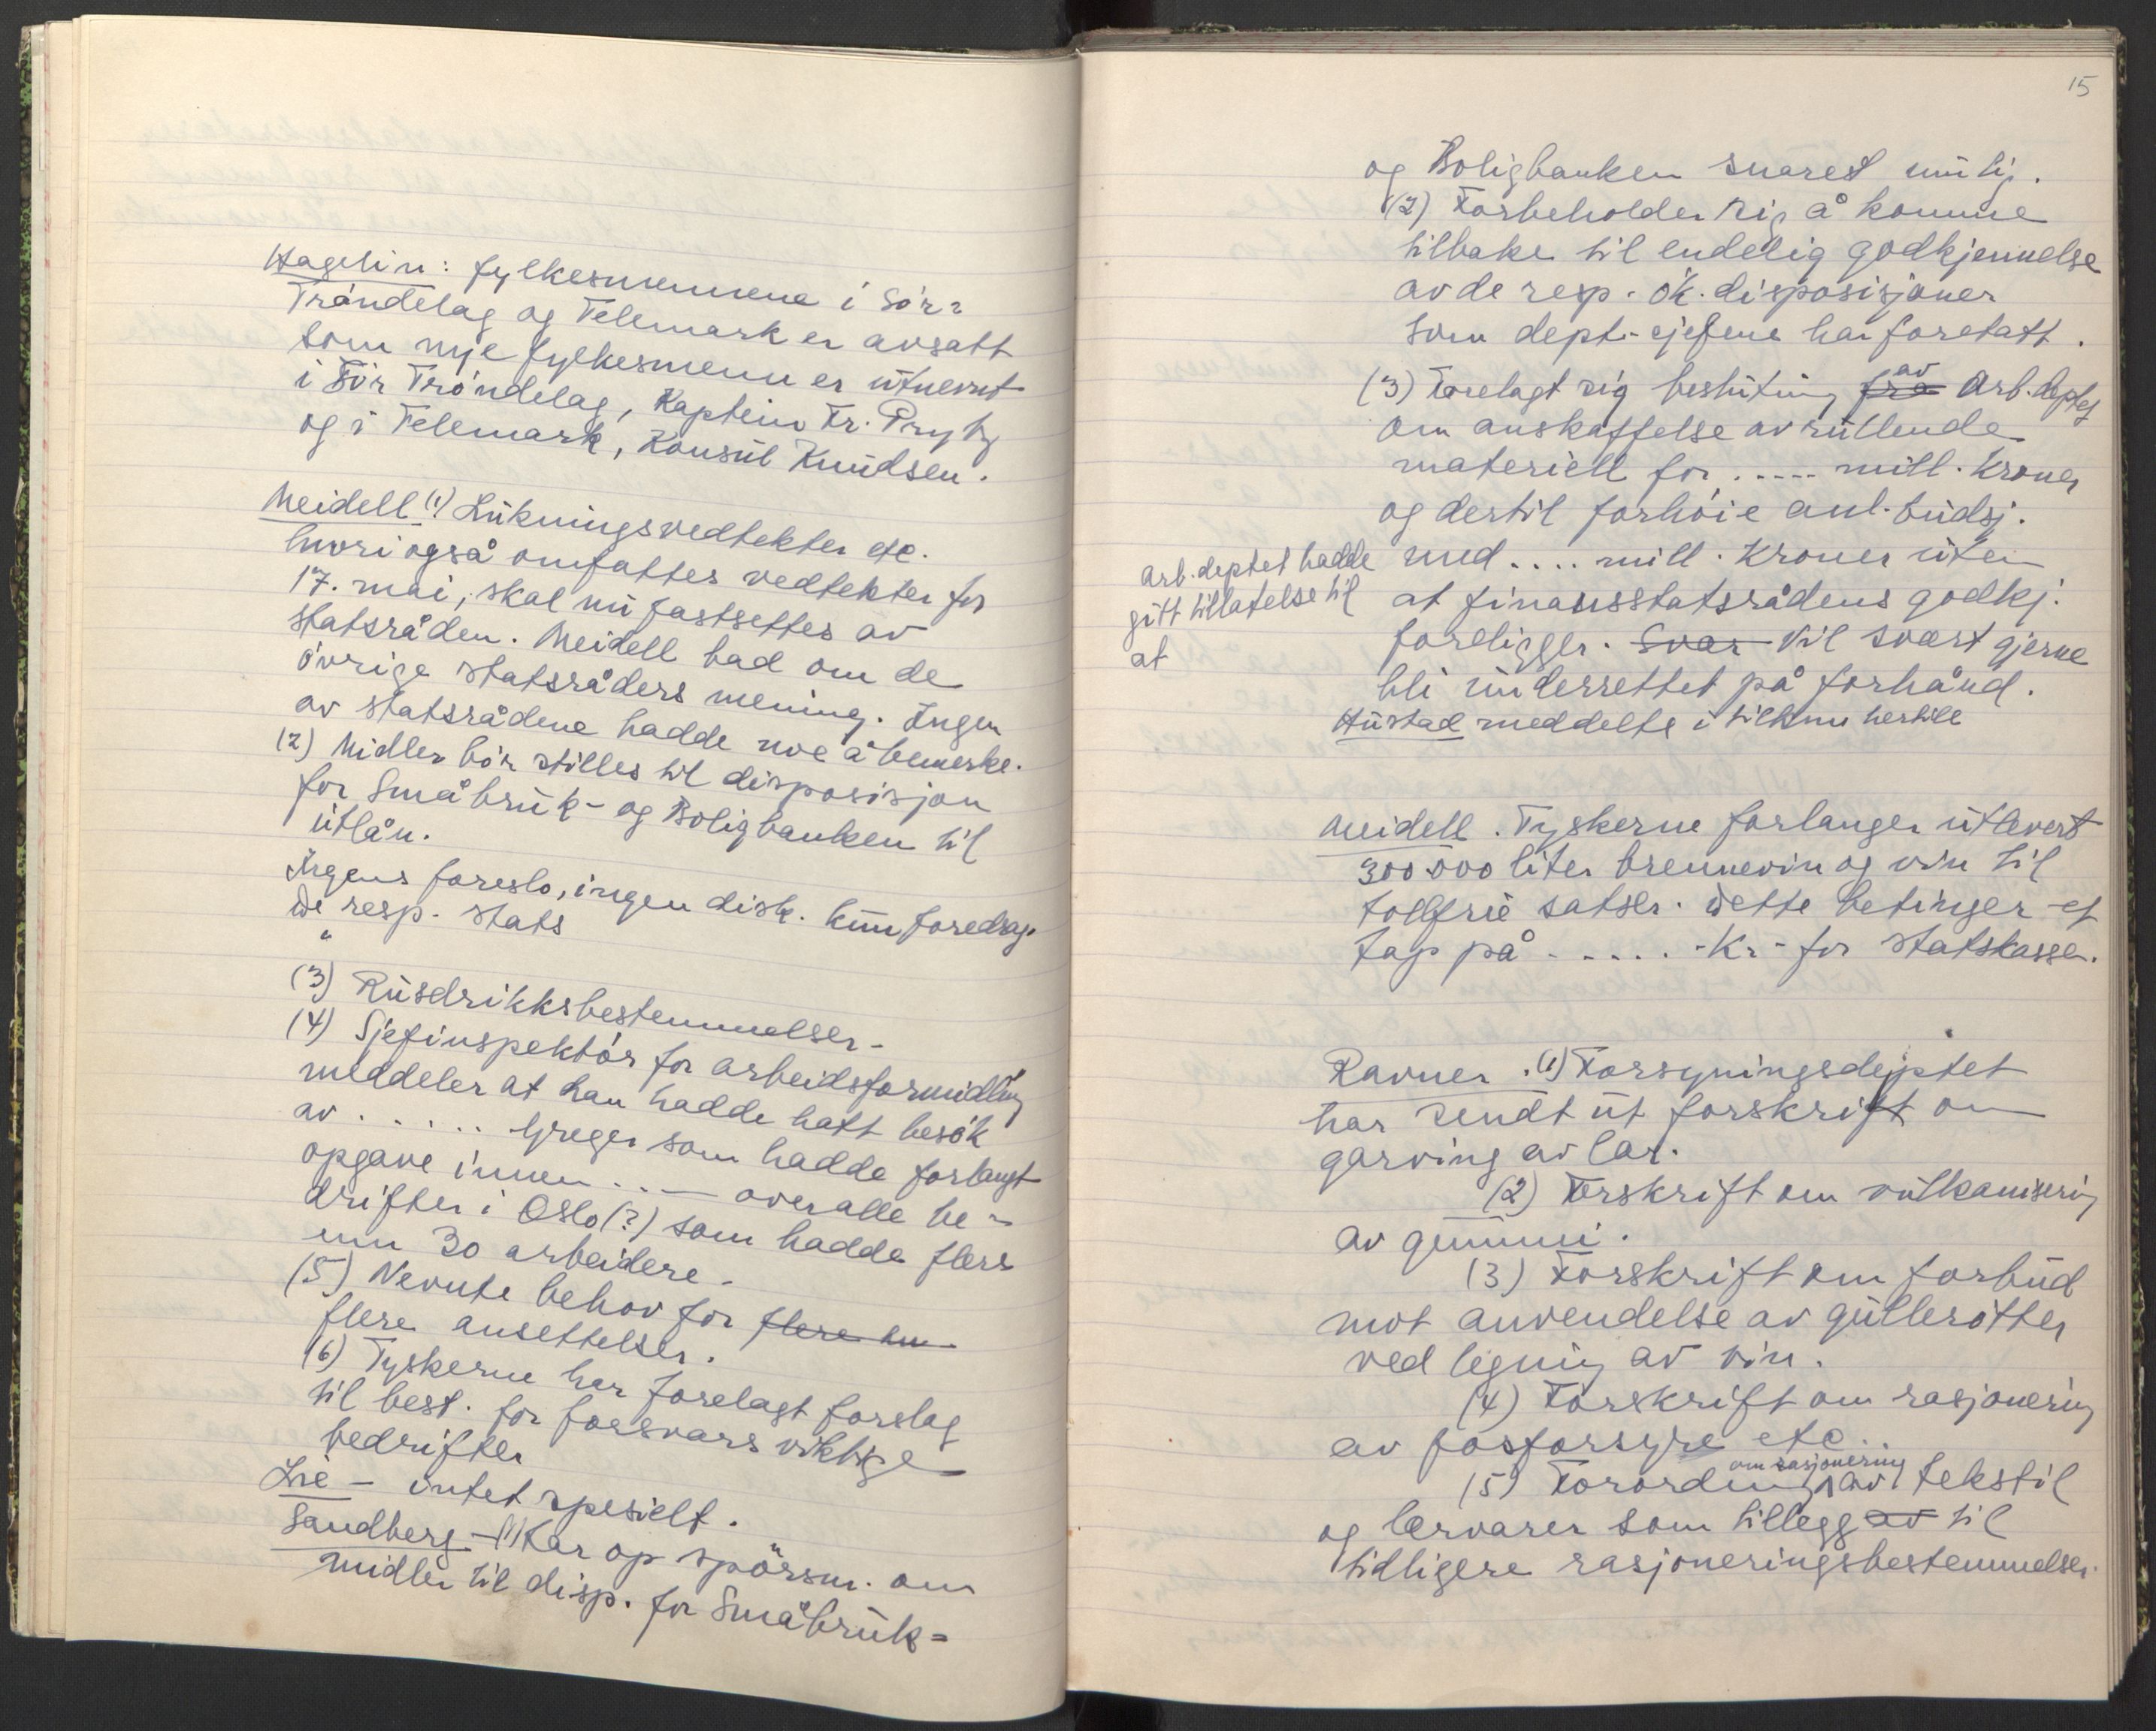 Hagelin: fylkesmennene i Sör-
Tröndelag og Telemark er avsatt
som nye fylkesmenn er utnevnt
i Sör Tröndelag, Kaptein Fr. Prytz
og i Telemark, Konsul Knudsen.
Meidell (1) Lukningsvedtekter etc.
hvori også omfattes vedtekter for
17. mai, skal nu fastsettes av
statsråden. Meidell bad om de
övrige statsråders mening. Ingen
av statsrådene hadde noe å bemerke.
(2) Midler bör stilles til disposisjon
for Småbruk- og Boligbanken til
utlån.
Irgens foreslo, ingen disk. kun foredrag.
de resp. stats
"
(3) Rusdrikksbestemmelser -
(4) Sjefinspektör for arbeidsformidling
meddeler at han hadde hatt besök
av ...... Greger som hadde forlangt
opgave innen ... — over alle be-
drifter i Oslo (?) som hadde flere
enn 30 arbeidere -
(5) Nevnte behov for flere
flere ansettelser.
(6) Tyskerne har forelagt forslag
til best. for forsvars viktige
bedrifter
Lie - intet spesielt.
Sandberg - (1) Tar op spörsm. om
midler til disp. for Småbruk=
15
og Boligbanken snarest mulig.
(2) Forbeholder sig å komme
tilbake til endelig godkjennelse
av de resp. ök. disposisjoner
som dept.-sjefene har foretatt.
(3) Forelagt sig beslutning fra av Arb. deptet
om anskaffelse av rullende
materiell for ..... mill. Kroner
og dertil forhöie anl. budsj.
med .... mill. Kroner uten
at finansstatsrådens godkj.
foreligger. Svar Vil svært gjerne
bli underrettet på forhånd.
Arb. deptet hadde
gitt tillatelse til
at
Hustad meddelte i tilkn. hertil
Meidell. Tyskerne forlanger utlevert
300.000 liter brennevin og vin til
tollfrie satser. Dette betinger et
tap på ...... Kr - for statskassen.
Ravner. (1) Forsyningsdeptet
har sendt ut forskrift om
garving av lær.
(2) Forskrift om vulkanisering
av gummi.
(3) Forskrift om forbud
mot anvendelse av gullerötter
ved legning av vin.
(4) Forskrift om rasjonering
av fosforsyre etc.
(5) Forordning om rasjonering av tekstil
og lærvarer som tillegg av til
tidligere rasjoneringsbestemmelser.